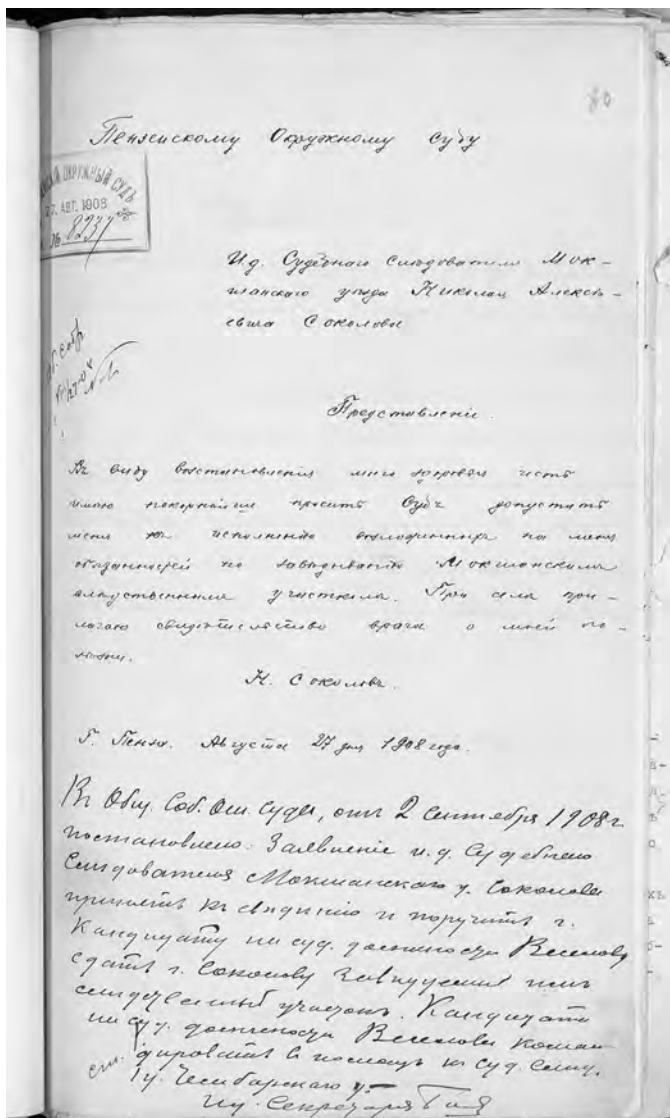 80
Пензенскому Окружному суду
СКІЙ ОКРУЖНЫЙ СУДЪ
27. АВГ. 1908
№ 8237
И. д. Судебнаго Слѣдователя Мок-
шанскаго уѣзда Николая Алексѣ-
евича Соколова
Представленіе.
Въ виду возстановленія мною здоровья честь
имѣю покорнѣйше просить Судъ допустить
меня къ исполненію возложенныхъ на меня
обязанностей по завѣдыванію Мокшанскимъ
слѣдственнымъ участкомъ. При семъ при-
лагаю свидѣтельство врача о моей бо-
лѣзни.
Н. Соколовъ.
Г. Пенза. Августа 27 дня 1908 года.
Въ Общ. Соб. Отд. Суда, отъ 2 Сентября 1908 г.
постановлено: Заявленіе и. д. Судебнаго
Слѣдователя Мокшанскаго у. Соколова
принять къ свѣдѣнію и поручить г.
Кандидату на суд. должности
сдать г. Соколову завѣдуемый имъ
слѣдственный участокъ. Кандидата
на суд. должности коман
дировать въ помощь къ суд. слѣд.
1 у. Чембарскаго у.
И. д. Секретаря